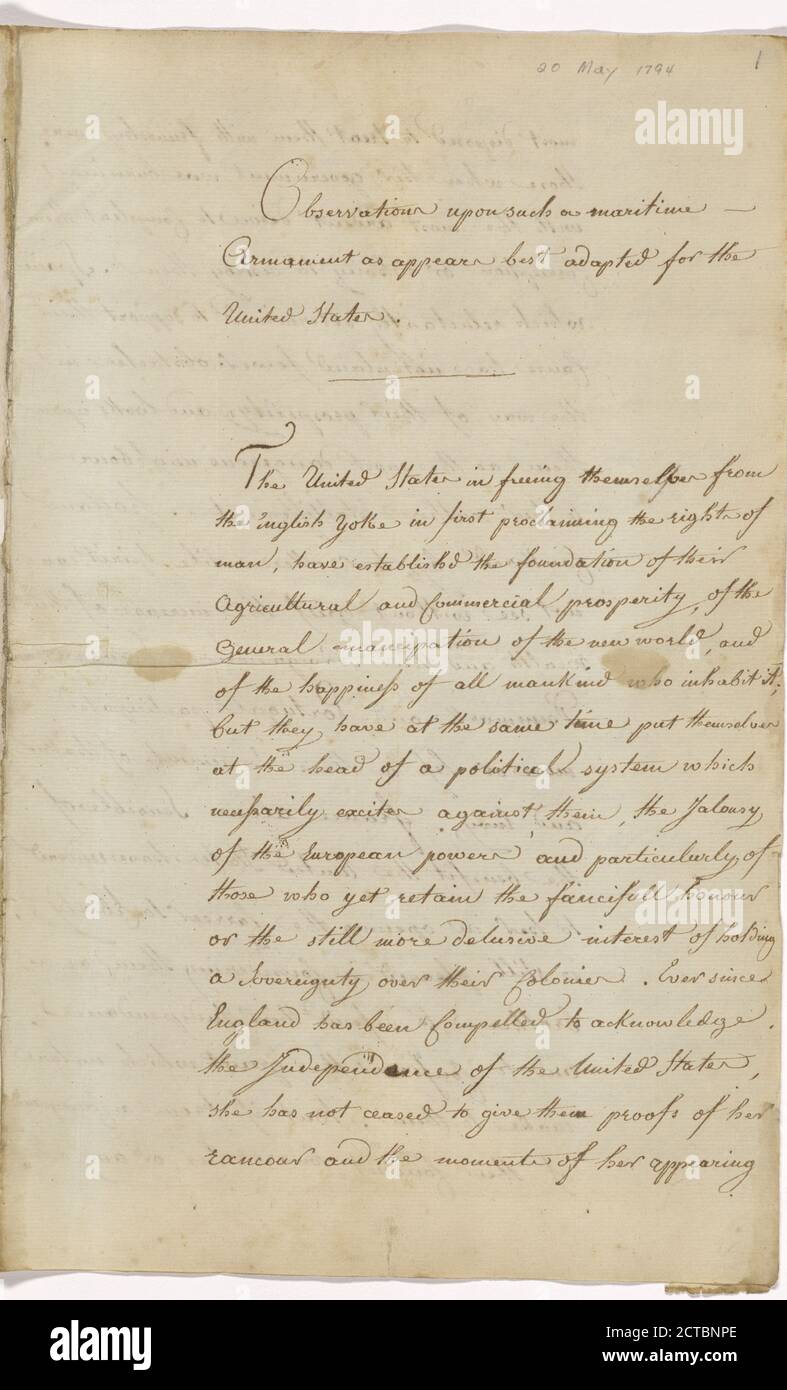 20 May 1794
1
Observations upon such a maritime —
Armament as appears best adapted for the
United States.
The United States in freeing themselves from
the English Yoke in first proclaiming the rights of
man, have establishd the foundation of their
Agricultural and Commercial prosperity, of the
General emancipation of the new world, and
of the happiness of all mankind who inhabit it;
but they have at the same time put themselves
at the head of a political system which
necessarily excites against them, the Jalousy
of the European powers and particularly, of
those who yet retain the fancifull honour
or the still more delusive interest of holding
a Sovereignty over their Colonies. Ever since
England has been Compelled to acknowledge.
the Independence of the United States,
she has not ceased to give them proofs of her
rancour and the moments of her appearing
alamy
a
alamy
Image ID: 2CTBNPE
www.alamy.com